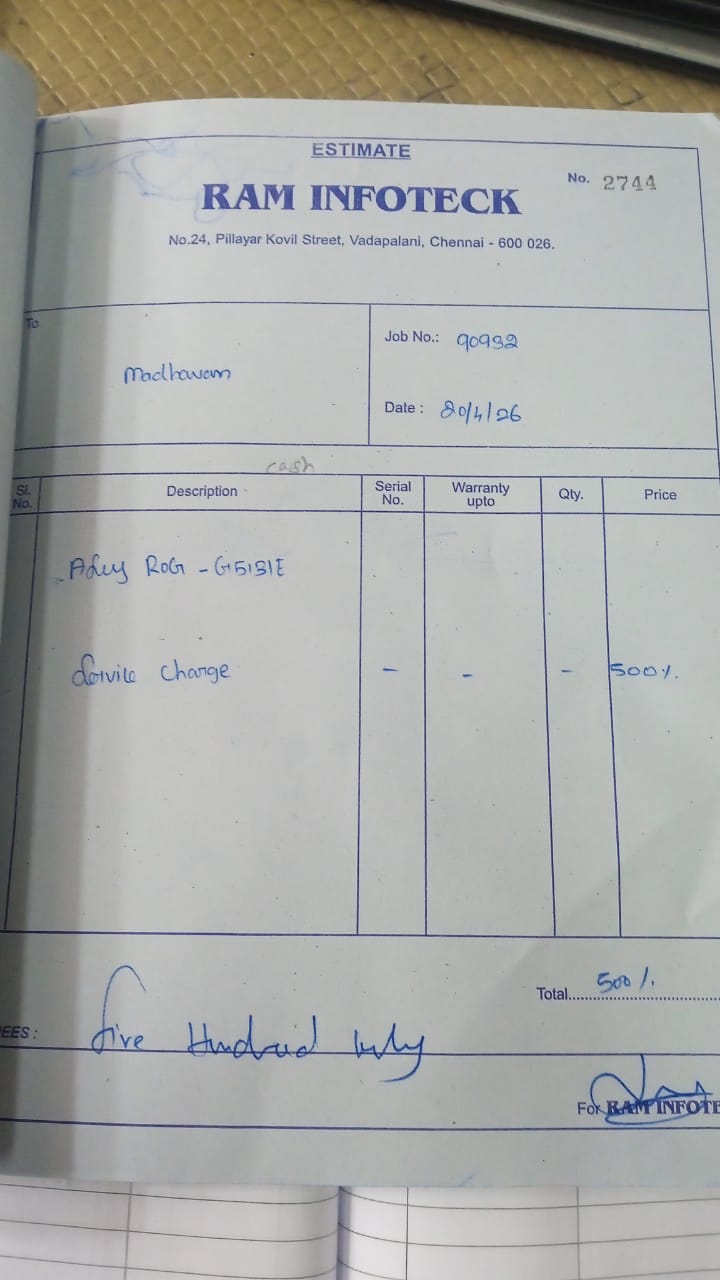 ESTIMATE
No. 2744
RAM INFOTECK
No.24, Pillayar Kovil Street, Vadapalani, Chennai - 600 026.
To
Madhavan
Job No.: 90932
Date : 20/4/26
cash
Sl. No. Description Serial No. Warranty upto Qty. Price
ROG - G531E
Service Charge - - - 500/.
Total 500/.
EES : Five Hundred only
For RAM INFOTE